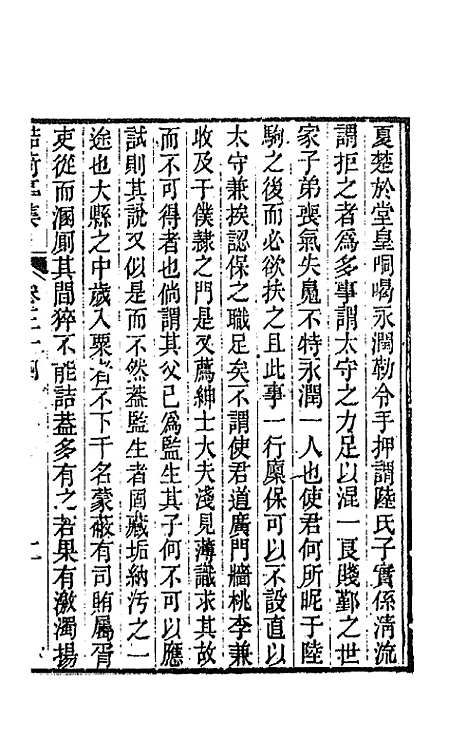 夏楚於堂皇啁喝永潤勒令手押謂陸氏子實係清流
謂拒之者為多事謂太守之力足以混一良賤鄞之世
家子弟喪氣失魄不特永潤一人也使君何所昵于陸
駒之後而必欲扶之且此事一行廩保可以不設直以
太守兼挨認保之職足矣不謂使君道廣門牆桃李兼
收及于僕隸之門是又薦紳士大夫淺見薄識求其故
而不可得者也倘謂其父已為監生其子何不可以應
試則其說又似是而不然蓋監生者固藏垢納汚之一
途也大縣之中歲入粟者不下千名蒙蔽有司賄屬胥
吏從而溷厠其間猝不能詰蓋多有之若果有激濁揚
鮚埼亭集
卷三十四
二